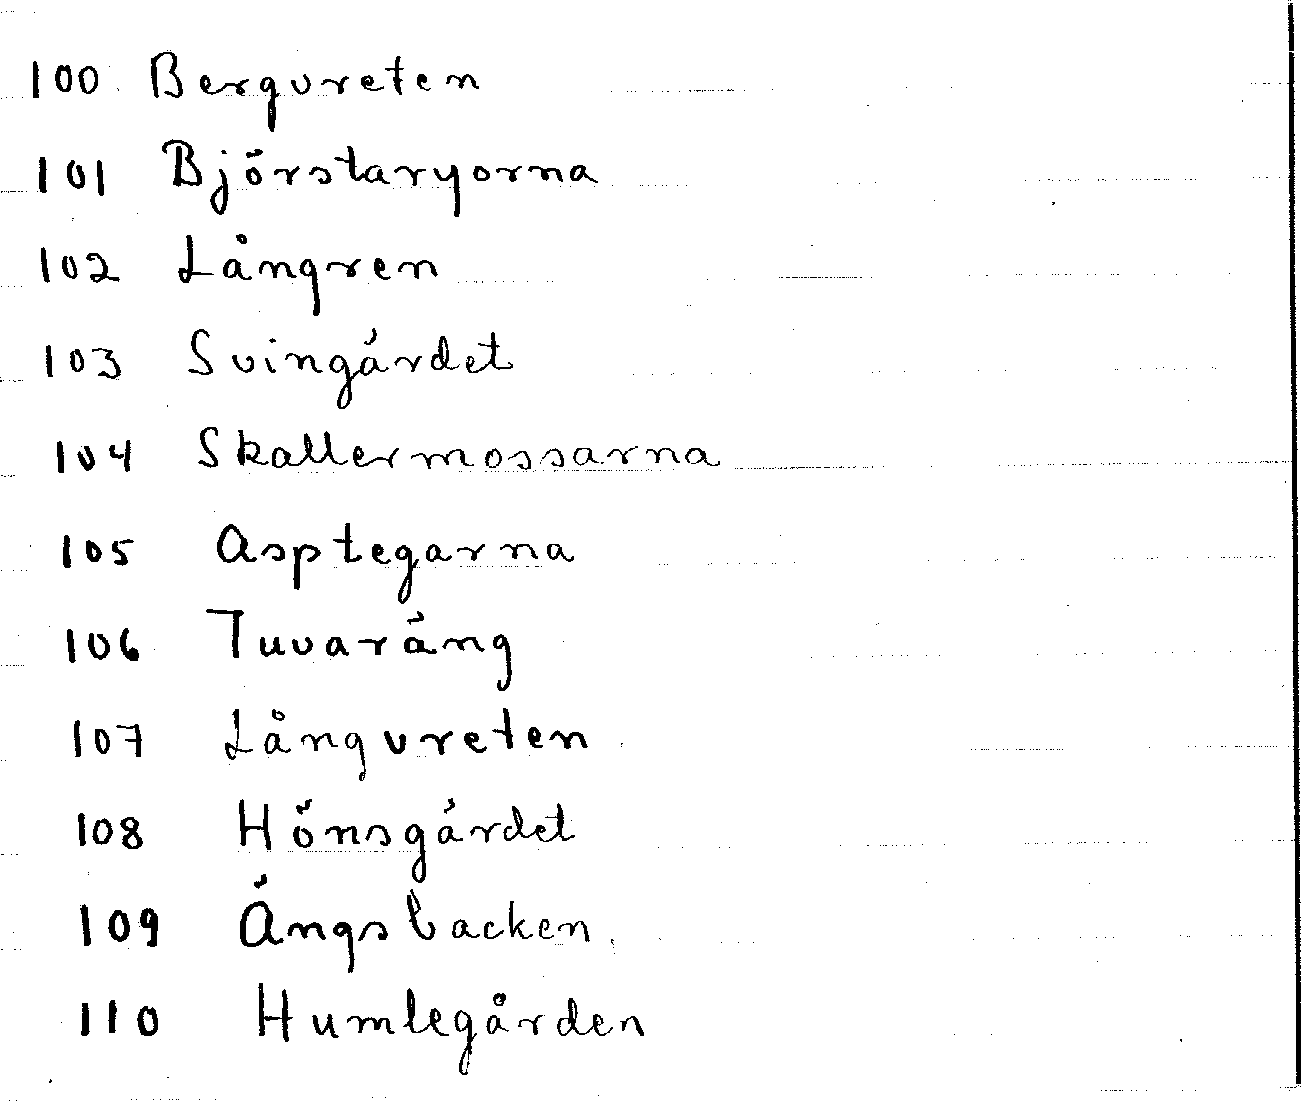 100 Bergvreten
101 Björstaryorna
102 Långren
103 Svingärdet
104 Skallermossarna
105 Asptegarna
106 Tuvaräng
107 Långvreten
108 Hönsgärdet
109 Ängsbacken
110 Humlegården